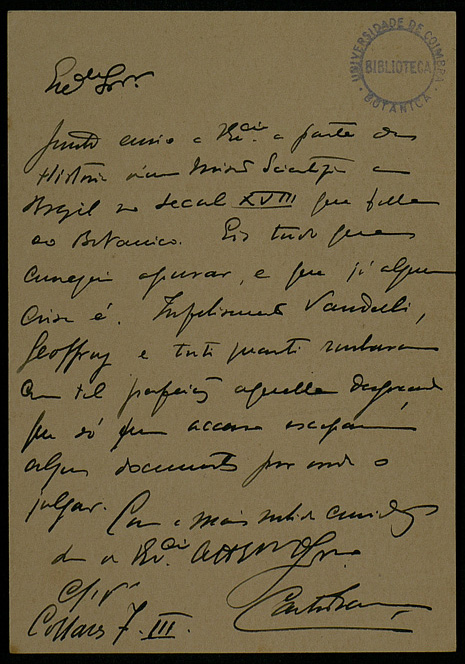 UNIVERSIDADE DE COIMBRA
BIBLIOTECA
BOTANICA
Junto envio a V. Ex.cia a parte da
Historia Missão Scientifica ao
Brazil no secul XVIII que falla
ao Botanico. Eis tudo quanto
consegui apurar, e que já alguma
coisa é. Infelizmente Vandelli,
Geoffroy e tuti quanti roubaram
com tal perfeição aquelle desgraçado
que só por acaso escapam
alguns documentos por onde o
julgar.
Com a mais consideração
de V. Ex.cia
Collares 7. III.